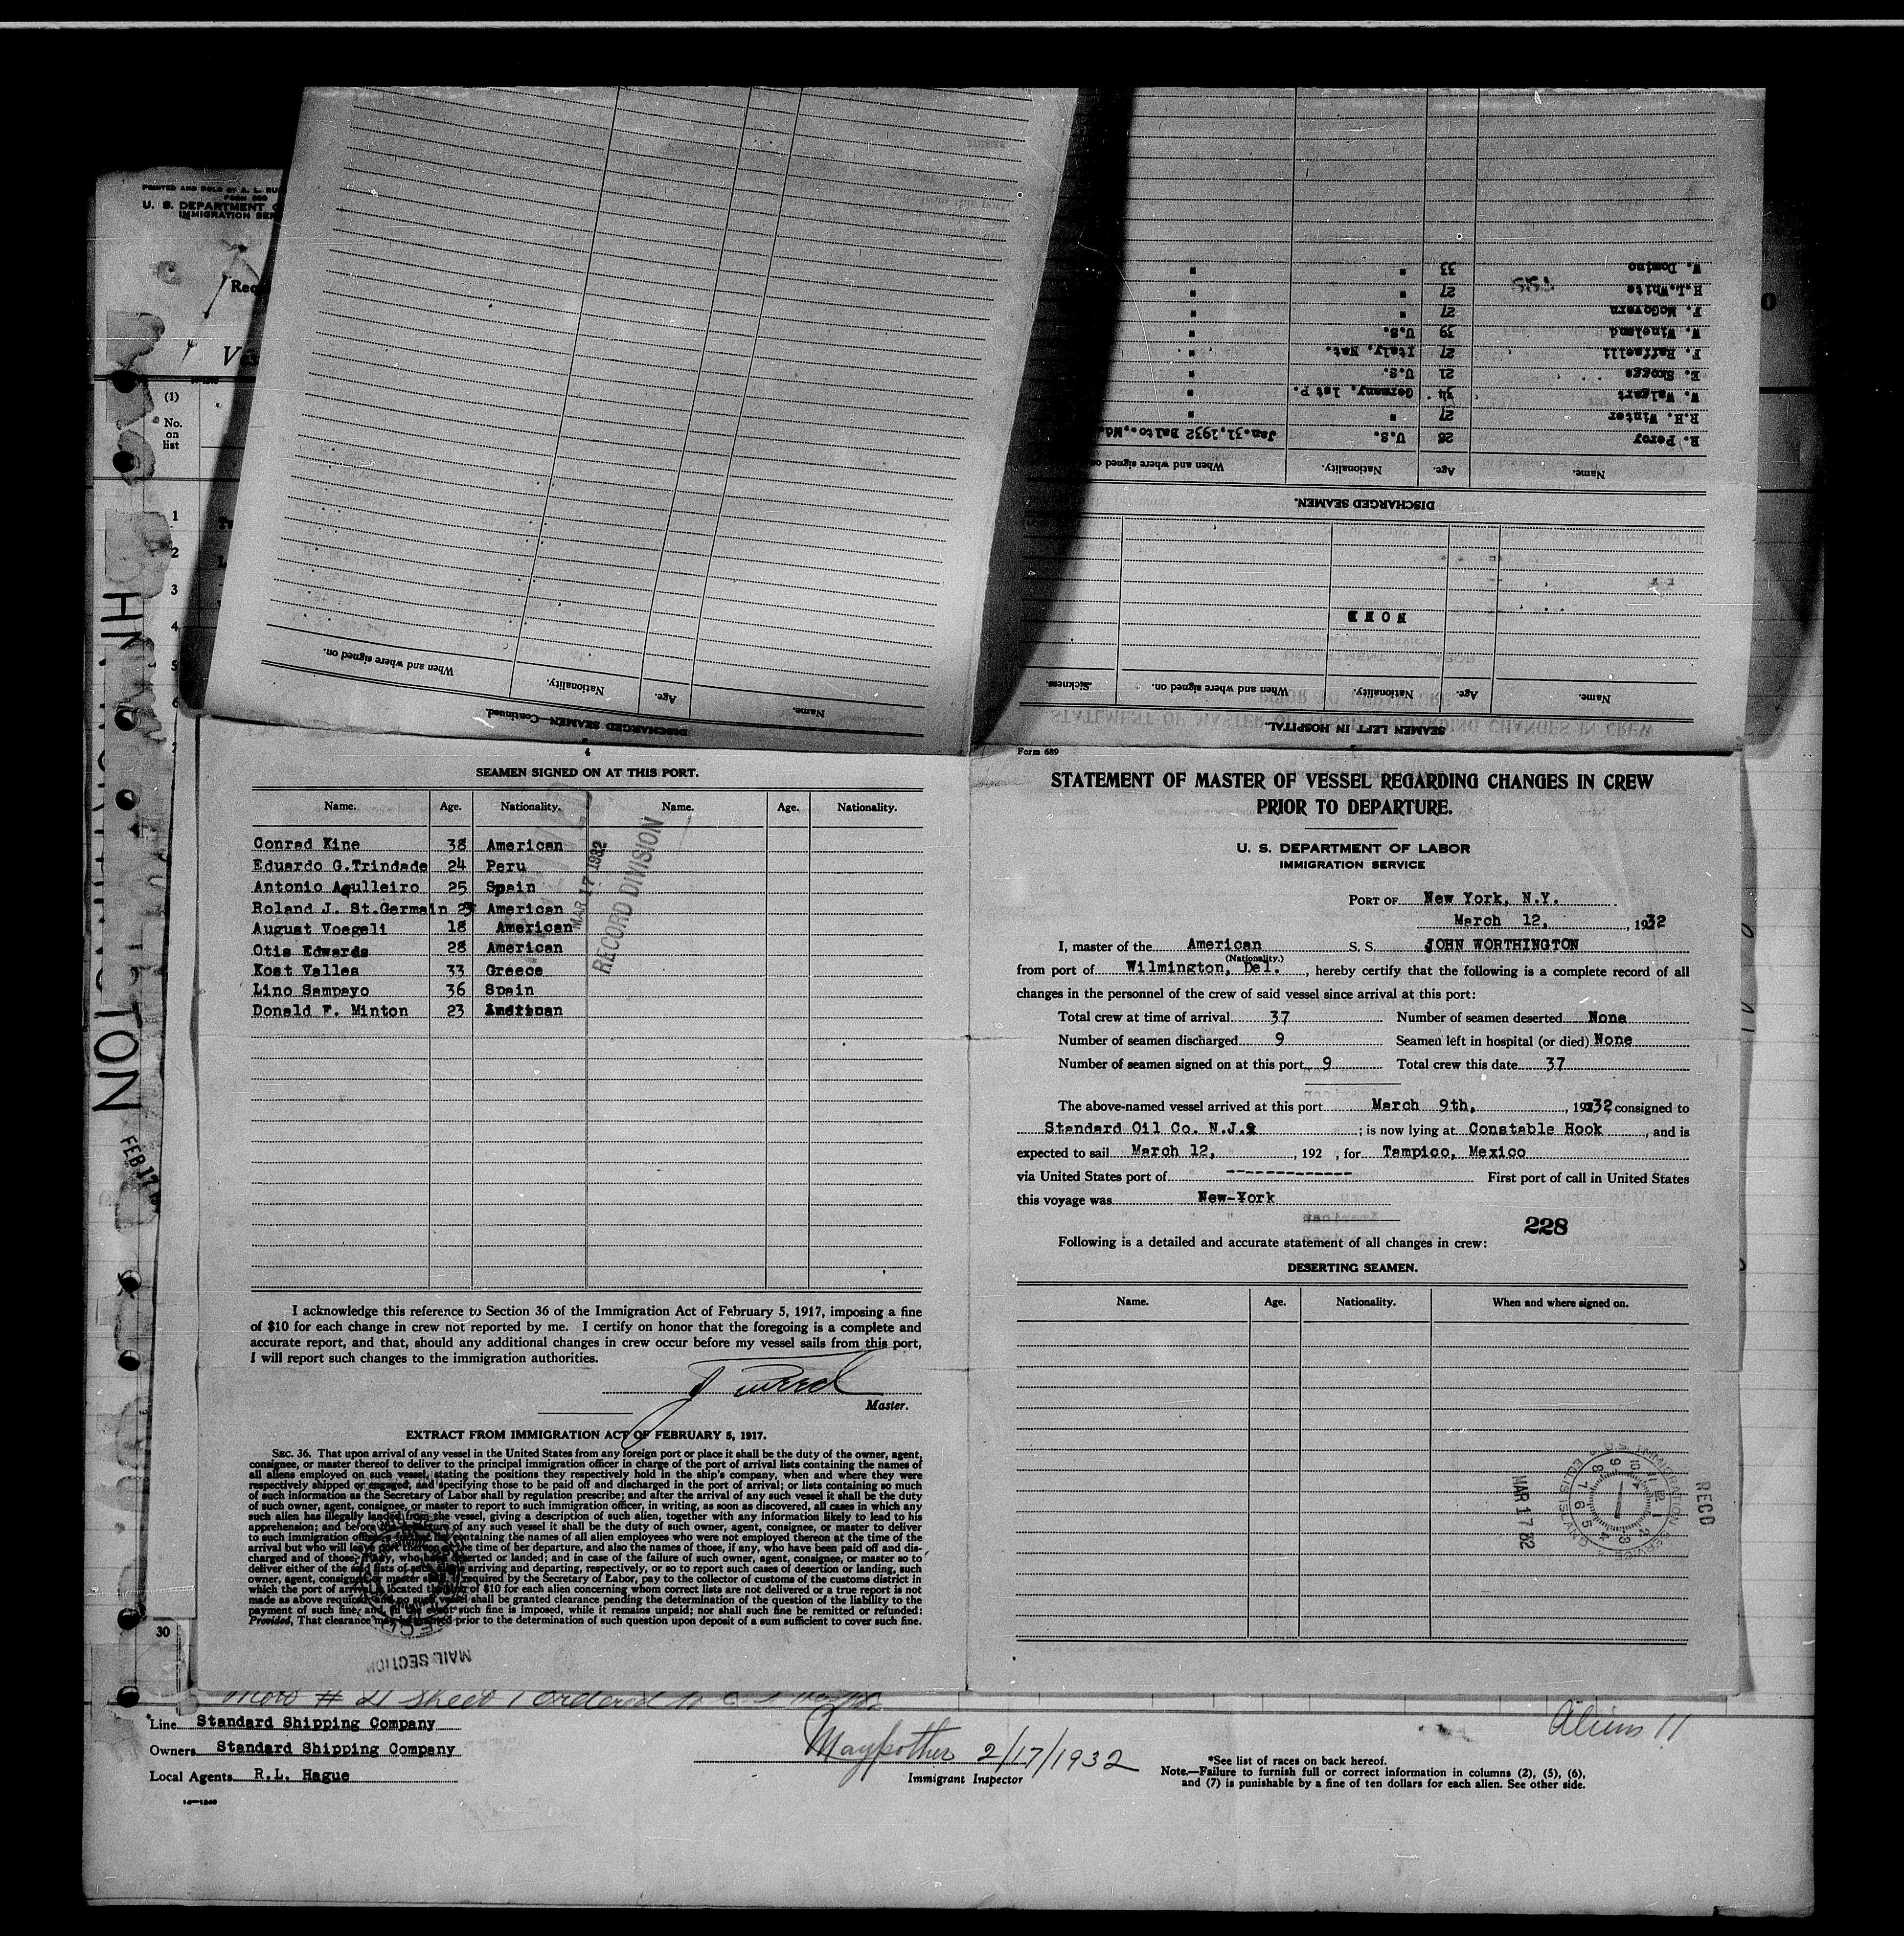 PRINTED AND SOLD BY A. L.
FORM 689
U. S. DEPARTMENT
IMMIGRATION
(1)
No.
on
list
1
2
3
4
5
6
7
30
TON
FEB 17
W. Domino 33 "  "
H.L.White 27 " "
F. McGovern 27 " "
W. Wineland 39 U.S. "
F. Raffaelli 27 Italy, Nat. "
E. Skoggs 21 U.S. "
W. Walgart 34 Germany, 1st P. "
R.H. Winter 27 " "
R. Percy 26 U.S. Jan.31,1932 Balto.,Md.
Name. Age. Nationality. When and where signed on
DISCHARGED SEAMEN.
NONE
Name. Age. Nationality. When and where signed on. Sickness.
SEAMEN LEFT IN HOSPITAL.
Name. Age. Nationality. When and where signed on.
DISCHARGED SEAMEN—Continued.
4
SEAMEN SIGNED ON AT THIS PORT.
Name. Age. Nationality. Name. Age. Nationality.
Conrad Kine 38 American
Eduardo G.Trindade 24 Peru
Antonio Aqulleiro 25 Spain
Roland J. St.Germain 23 American
August Voegeli 18 American
Otis Edwards 28 American
Kost Valles 33 Greece
Lino Sampayo 36 Spain
Donald F. Minton 23 American
MAR 17 1932
RECORD DIVISION
I acknowledge this reference to Section 36 of the Immigration Act of February 5, 1917, imposing a fine
of $10 for each change in crew not reported by me. I certify on honor that the foregoing is a complete and
accurate report, and that, should any additional changes in crew occur before my vessel sails from this port,
I will report such changes to the immigration authorities.
Master.
EXTRACT FROM IMMIGRATION ACT OF FEBRUARY 5, 1917.
SEC. 36. That upon arrival of any vessel in the United States from any foreign port or place it shall be the duty of the owner, agent,
consignee, or master thereof to deliver to the principal immigration officer in charge of the port of arrival lists containing the names of
all aliens employed on such vessel, stating the positions they respectively hold in the ship's company, when and where they were
respectively shipped or engaged, and specifying those to be paid off and discharged in the port of arrival; or lists containing so much
of such information as the Secretary of Labor shall by regulation prescribe; and after the arrival of any such vessel it shall be the duty
of such owner, agent, consignee, or master to report to such immigration officer, in writing, as soon as discovered, all cases in which any
such alien has illegally landed from the vessel, giving a description of such alien, together with any information likely to lead to his
apprehension; and before the departure of any such vessel it shall be the duty of such owner, agent, consignee, or master to deliver
to such immigration officer a further list containing the names of all alien employees who were not employed thereon at the time of the
arrival but who will leave port thereon at the time of her departure, and also the names of those, if any, who have been paid off and dis-
charged and of those, if any, who have deserted or landed; and in case of the failure of such owner, agent, consignee, or master so to
deliver either of the said lists of such aliens arriving and departing, respectively, or so to report such cases of desertion or landing, such
owner, agent, consignee, or master shall, if required by the Secretary of Labor, pay to the collector of customs of the customs district in
which the port of arrival is located the sum of $10 for each alien concerning whom correct lists are not delivered or a true report is not
made as above required; and no such vessel shall be granted clearance pending the determination of the question of the liability to the
payment of such fine, and, in the event such fine is imposed, while it remains unpaid; nor shall such fine be remitted or refunded:
Provided, That clearance may be granted prior to the determination of such question upon deposit of a sum sufficient to cover such fine.
MAIL SECTION
Form 689
STATEMENT OF MASTER OF VESSEL REGARDING CHANGES IN CREW
PRIOR TO DEPARTURE.
U. S. DEPARTMENT OF LABOR
IMMIGRATION SERVICE
PORT OF New York, N.Y.
March 12, , 1932
I, master of the American S. S. JOHN WORTHINGTON
(Nationality.)
from port of Wilmington, Del. , hereby certify that the following is a complete record of all
changes in the personnel of the crew of said vessel since arrival at this port:
Total crew at time of arrival 37 Number of seamen deserted None
Number of seamen discharged 9 Seamen left in hospital (or died) None
Number of seamen signed on at this port 9 Total crew this date 37
The above-named vessel arrived at this port March 9th, , 1932 consigned to
Standard Oil Co. N.J. ; is now lying at Constable Hook , and is
expected to sail March 12, , 192 , for Tampico, Mexico
via United States port of ------------- First port of call in United States
this voyage was New-York
228
Following is a detailed and accurate statement of all changes in crew:
DESERTING SEAMEN.
Name. Age. Nationality. When and where signed on.
MAR 17 32
RECD
Line Standard Shipping Company
Owners Standard Shipping Company
Local Agents R.L. Hague
2/17/1932
Immigrant Inspector
Aliens 11
*See list of races on back hereof.
Note.—Failure to furnish full or correct information in columns (2), (5), (6),
and (7) is punishable by a fine of ten dollars for each alien. See other side.
14—1240